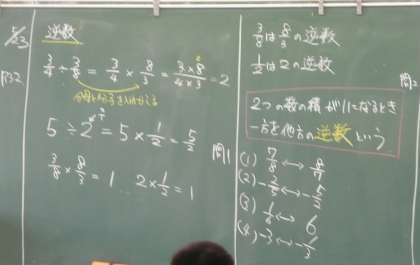 5/23
逆数
問32
3/4 ÷ 3/8 = 3/4 × 8/3 = 3×8/4×3 = 2
分母と分子を入れかえる
5 ÷ 2 = 5 × 1/2 = 5/2
3/8 × 8/3 = 1 2 × 1/2 = 1
3/8は8/3の逆数
1/2は2の逆数
2つの数の積が1になるとき
一方を他方の逆数という
問1
(1) 7/8 ↔ 8/7
(2) -2/5 ↔ -5/2
(3) 1/6 ↔ 6
(4) -3 ↔ -1/3
問2